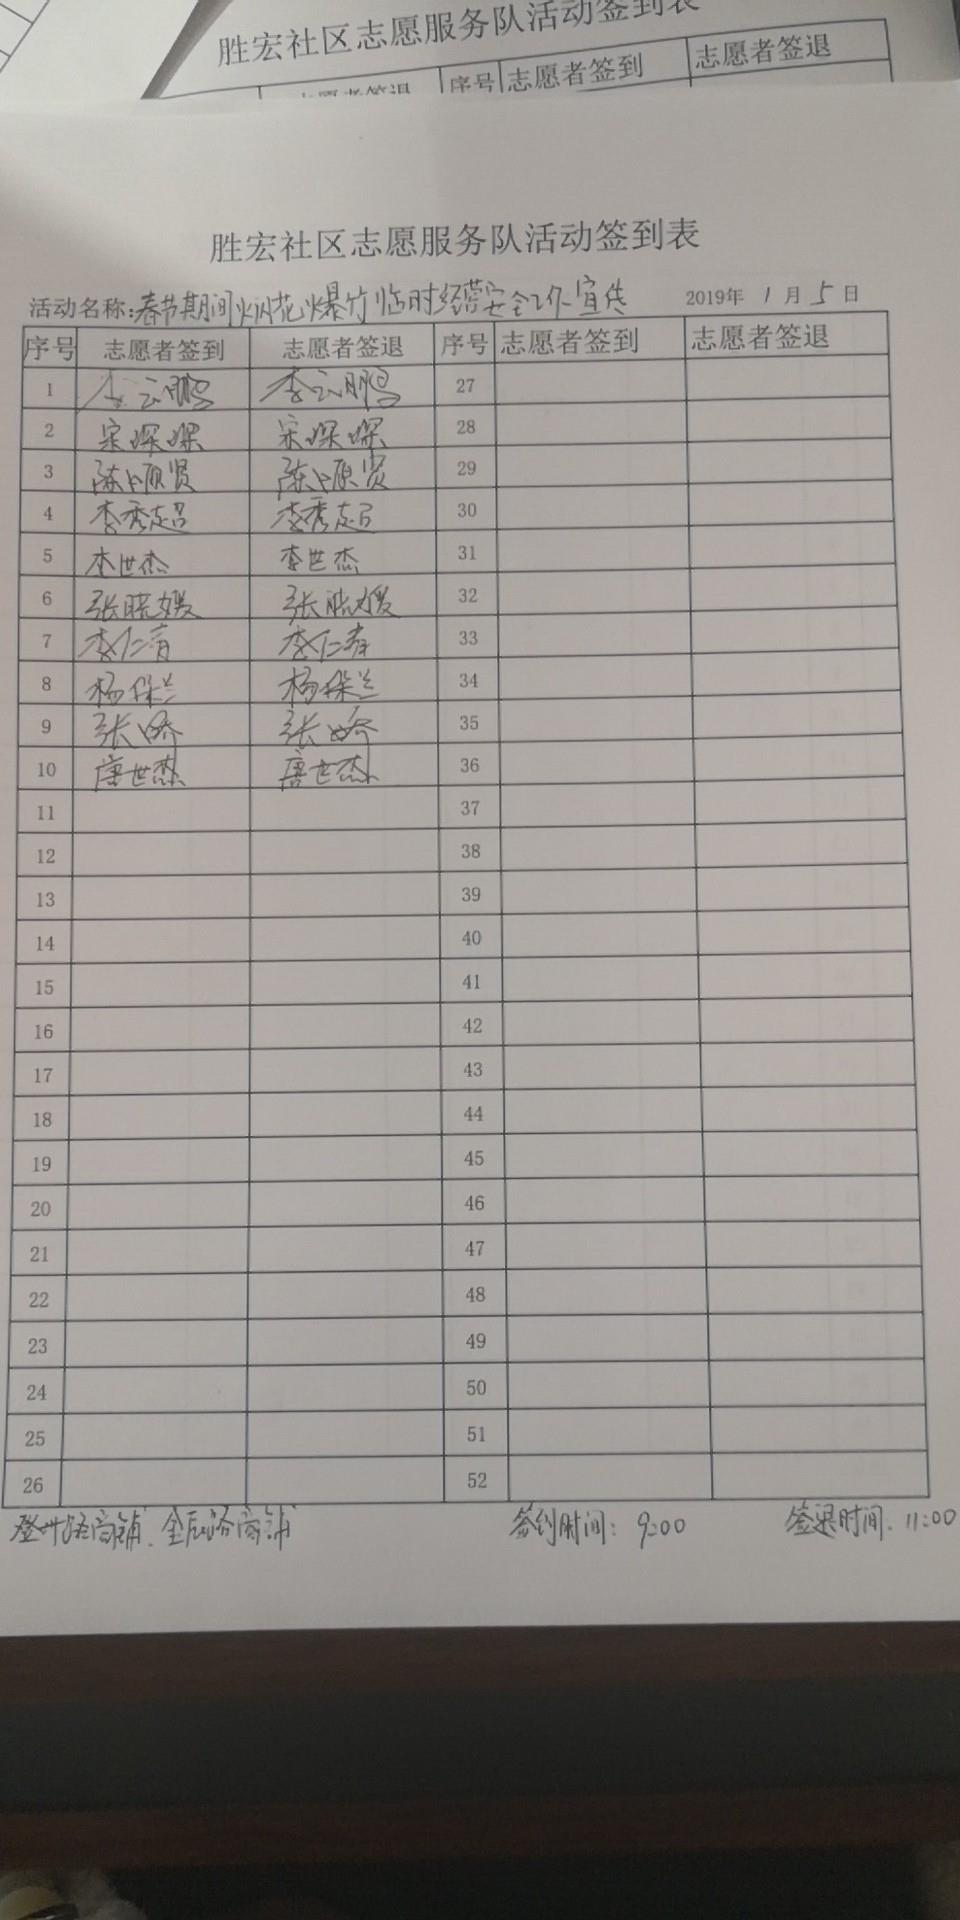 胜宏社区志愿服务队活动签到表
志愿者签退 序号 志愿者签到 志愿者签退
胜宏社区志愿服务队活动签到表
活动名称:春节期间烟花爆竹临时经营安全工作宣传 2019年 1 月 5 日
序号 志愿者签到 志愿者签退 序号 志愿者签到 志愿者签退
1 李云鹏 李云鹏 27
2 宋琛琛 宋琛琛 28
3 陈上颀贤 陈上颀贤 29
4 李秀超 李秀超 30
5 李世杰 李世杰 31
6 张晓媛 张晓媛 32
7 李仁青 李仁青 33
8 杨保兰 杨保兰 34
9 张娇 张娇 35
10 唐世杰 唐世杰 36
11 37
12 38
13 39
14 40
15 41
16 42
17 43
18 44
19 45
20 46
21 47
22 48
23 49
24 50
25 51
26 52
登州路商铺、金辰路商铺 签到时间: 9:00 签退时间: 11:00